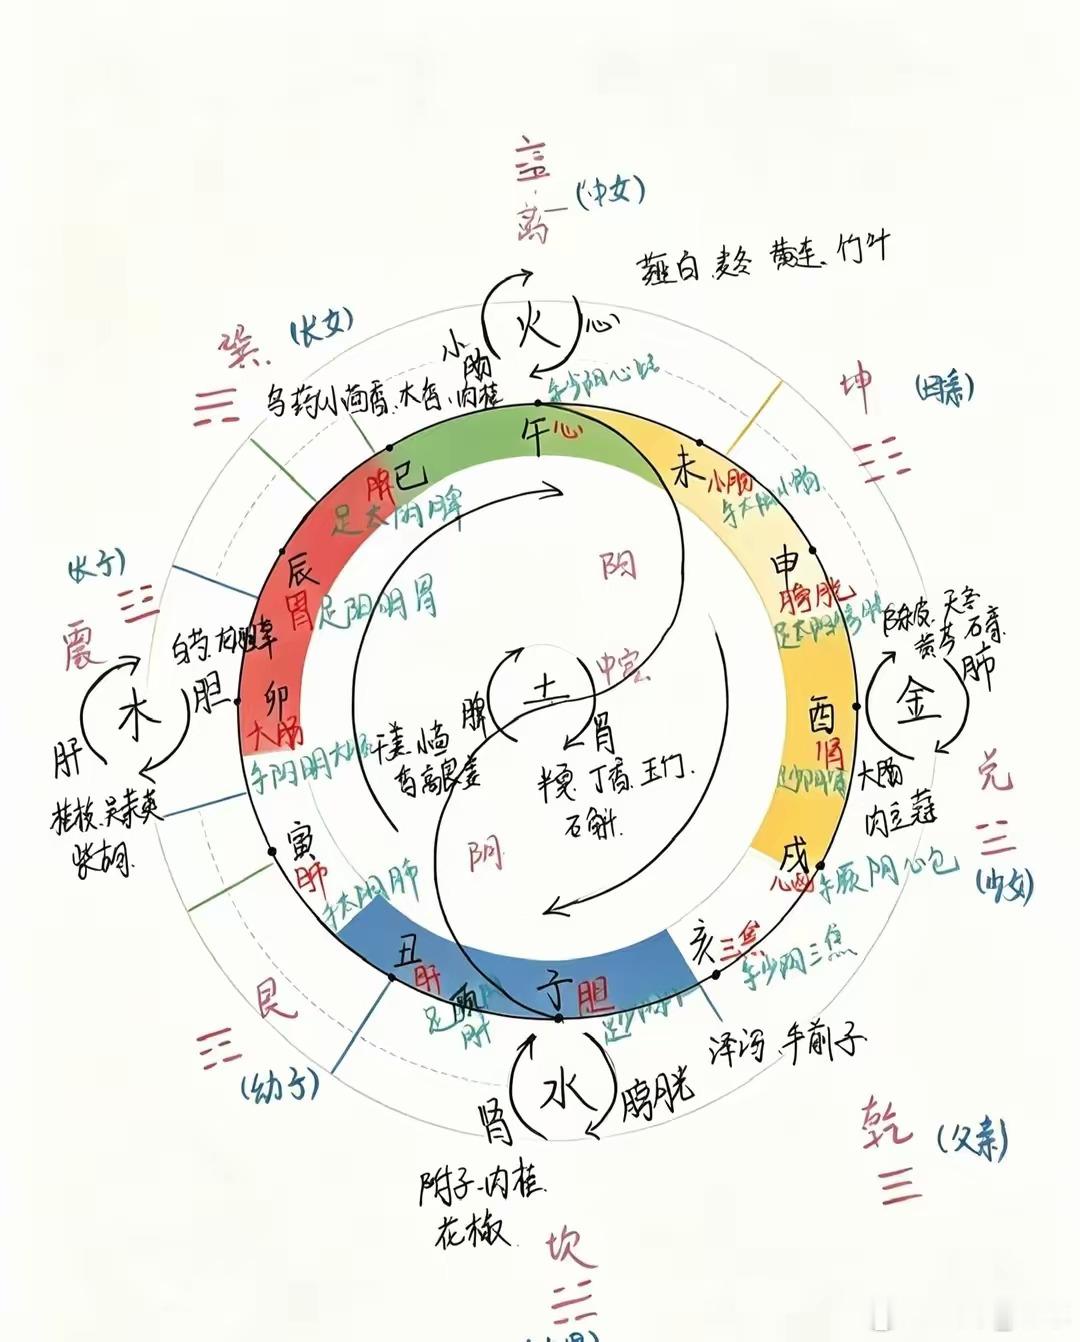 离
(中女)
薤白、麦冬 黄连、竹叶
火
心
小
肠
巽
(长女)
乌药 小茴香、木香、肉桂
手少阴心经
坤
(母亲)
午 心
未 小肠
手太阳小肠
脾 巳
足太阴脾
申
膀胱
足太阳膀胱
辰
胃 足阳明胃
阳
(长子)
震
白芍、龙胆草
木
胆
肝
桂枝、吴茱萸
柴胡
卯
大肠
手阳明大肠
中宫
土
脾
胃
干姜、小茴
香 高良姜
半夏、丁香、玉竹、
石斛
酉
肾
足少阴肾
陈皮、天冬
黄芩、石膏
金
肺
大肠
肉豆蔻
兑
(少女)
寅
肺
手太阴肺
阴
戌
心包 手厥阴心包
丑
肝
足厥阴
肝
子 胆
足少阳胆
亥 三焦
手少阳三焦
艮
(幼子)
泽泻、车前子
水
肾
膀胱
附子、肉桂
花椒
乾
(父亲)
坎